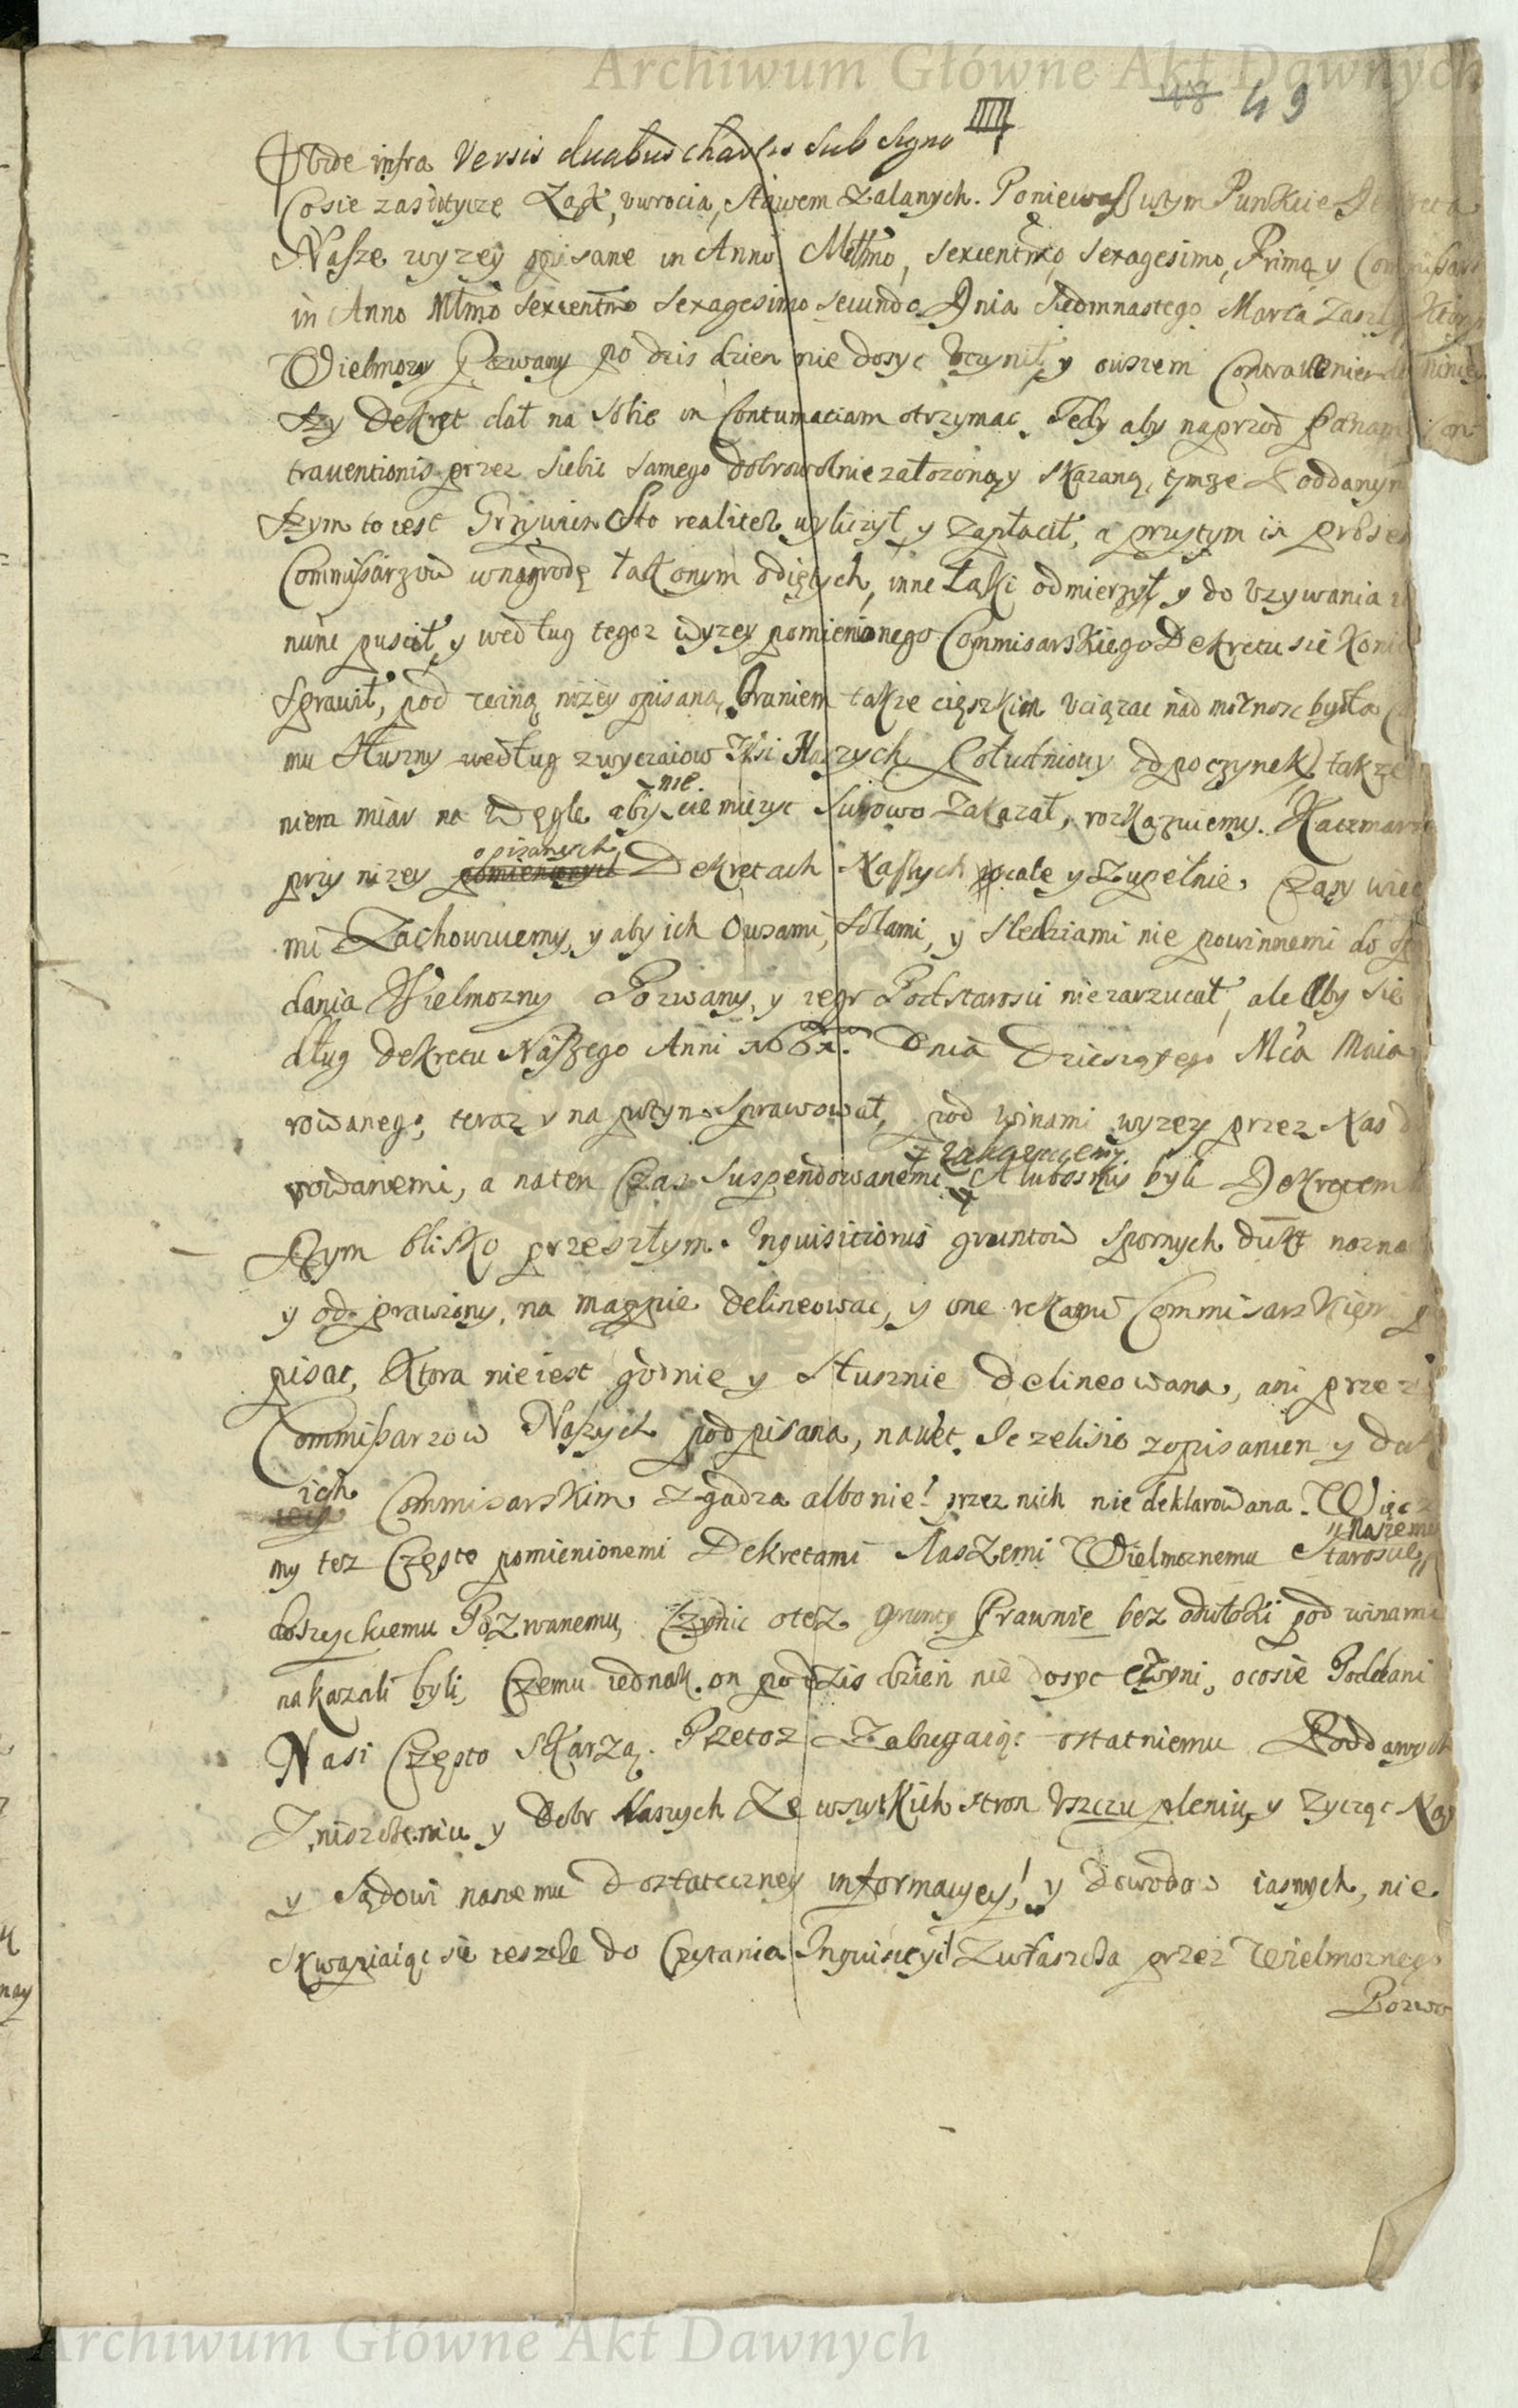 Archiwum Główne Akt Dawnych
48 49
Vide infra Versis duabus chartis sub signo
Co sie zas dotycze Łąk, uwrocia, stawem zalanych. Poniewaß wtym Punkcie Dekreta
Nasze wyzey opisane in Anno Mllmo, sexcentmo, sexagesimo, Primo, y Commissars
in Anno Mlmo sexcentmo sexagesimo secundo Dnia siedmnastego Marca zaszly, Ktorym
Wielmozny Pozwany po dzis dzien nie dosyc uczynił, y owszem Contraveniendo ninie
szy Dekret dał na sobie in Contumaciam otrzymac. Tedy aby naprzod pænam Con
traventionis przez siebie samego dobrowolnie załozoną, y skazaną, tymze Poddanym
szym to iest Grzywien Sto realiter wyliczył, y zapłacił, a przytym
Commissarzow wnagrodę łąk onym odiętych, inne Łąki odmierzył, y do uzywania
nunc puscił, y według tegoz wyzey pomienionego Commisarskiego Dekretu sie
sprawił, pod winą nizey opisaną. Oraniem takze cięszkim uciązac nad moznosc bydła
mu słuszny według zwyczaiow Wsi Naszych Południowy odpoczynek) takze
niem miar na Węgle aby nie ciemiezyc surowo zakazał, rozkazuiemy. Kaczmarz
przy nizey opisanych pomienionych Dekretach Naszych wcale y zupełnie, Czasy wiec
mi Zachowuiemy, y aby ich Owsami, Solami, y sledziami nie powinnemi do
dania Wielmozny Pozwany, y iego Podstarosci niezarzucał, ale aby sie
dług Dekretu Naszego Anni 1661. Dnia Dziesiątego Mca Maia
rowanego, teraz y na potym sprawował, pod winami wyzey przez Nas
rowanemi, a na ten Czas suspendowanemi zakazuiemy. A lubosmy byli Dekretem
szym blisko przeszłym. Inquisitionis gruntow spornych dukt
y od prawiony, na mappie delineowac, y one rękami Commisarskiemi
pisac, Ktora nie iest godnie y słusznie Delineowana, ani przez
Commissarzow Naszych podpisana, nawet. Jezeli sie z opisaniem y
ich Commisarskim zgadza albo nie! przez nich nie deklarowana. Więc
my tez Często pomienionemi Dekretami Naszemi Wielmoznemu Staroscie y Naszemu
Pozwanemu, Czynic otez grunty Prawnie bez odwłoki pod winami
nakazali byli, Czemu iednak on po dzis dzien nie dosyc czyni, ocosie Poddani
Nasi Często skarzą. Przetoz Zabiegaiąc ostatniemu Poddanych
Zniszczeniu y Dobr Naszych Ze wszytkich stron Uszczupleniu, y zycząc
y Sądowi naszemu Dostateczney informacyey! y Dowodow iasnych, nie
skwapiaiąc sie ieszcze do Czytania Inquisicyi! Zwłaszcza przez Wielmoznego
Pozwa
Archiwum Główne Akt Dawnych